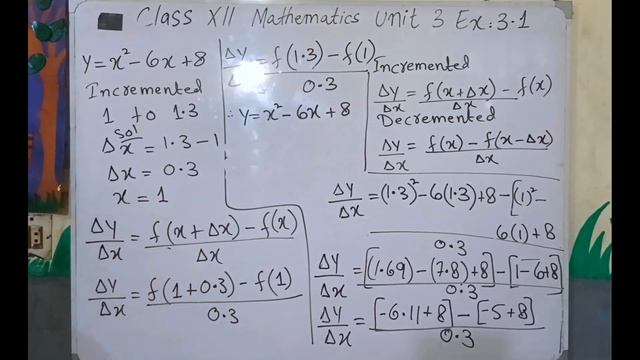 Class XII Mathematics Unit 3 Ex. 3.1
y = x² - 6x + 8
Incremented
1 to 1.3
Sol
Δx = 1.3 - 1
Δx = 0.3
x = 1
Δy/Δx = f(x + Δx) - f(x) / Δx
Δy/Δx = f(1 + 0.3) - f(1) / 0.3
Δy/Δx = f(1.3) - f(1) / 0.3
∴ y = x² - 6x + 8
Incremented
Δy/Δx = f(x + Δx) - f(x) / Δx
Decremented
Δy/Δx = f(x) - f(x - Δx) / Δx
Δy/Δx = (1.3)² - 6(1.3) + 8 - [(1)² -
6(1) + 8
0.3
Δy/Δx = [(1.69) - (7.8) + 8] - [1 - 6 + 8] / 0.3
Δy/Δx = [-6.11 + 8] - [-5 + 8] / 0.3